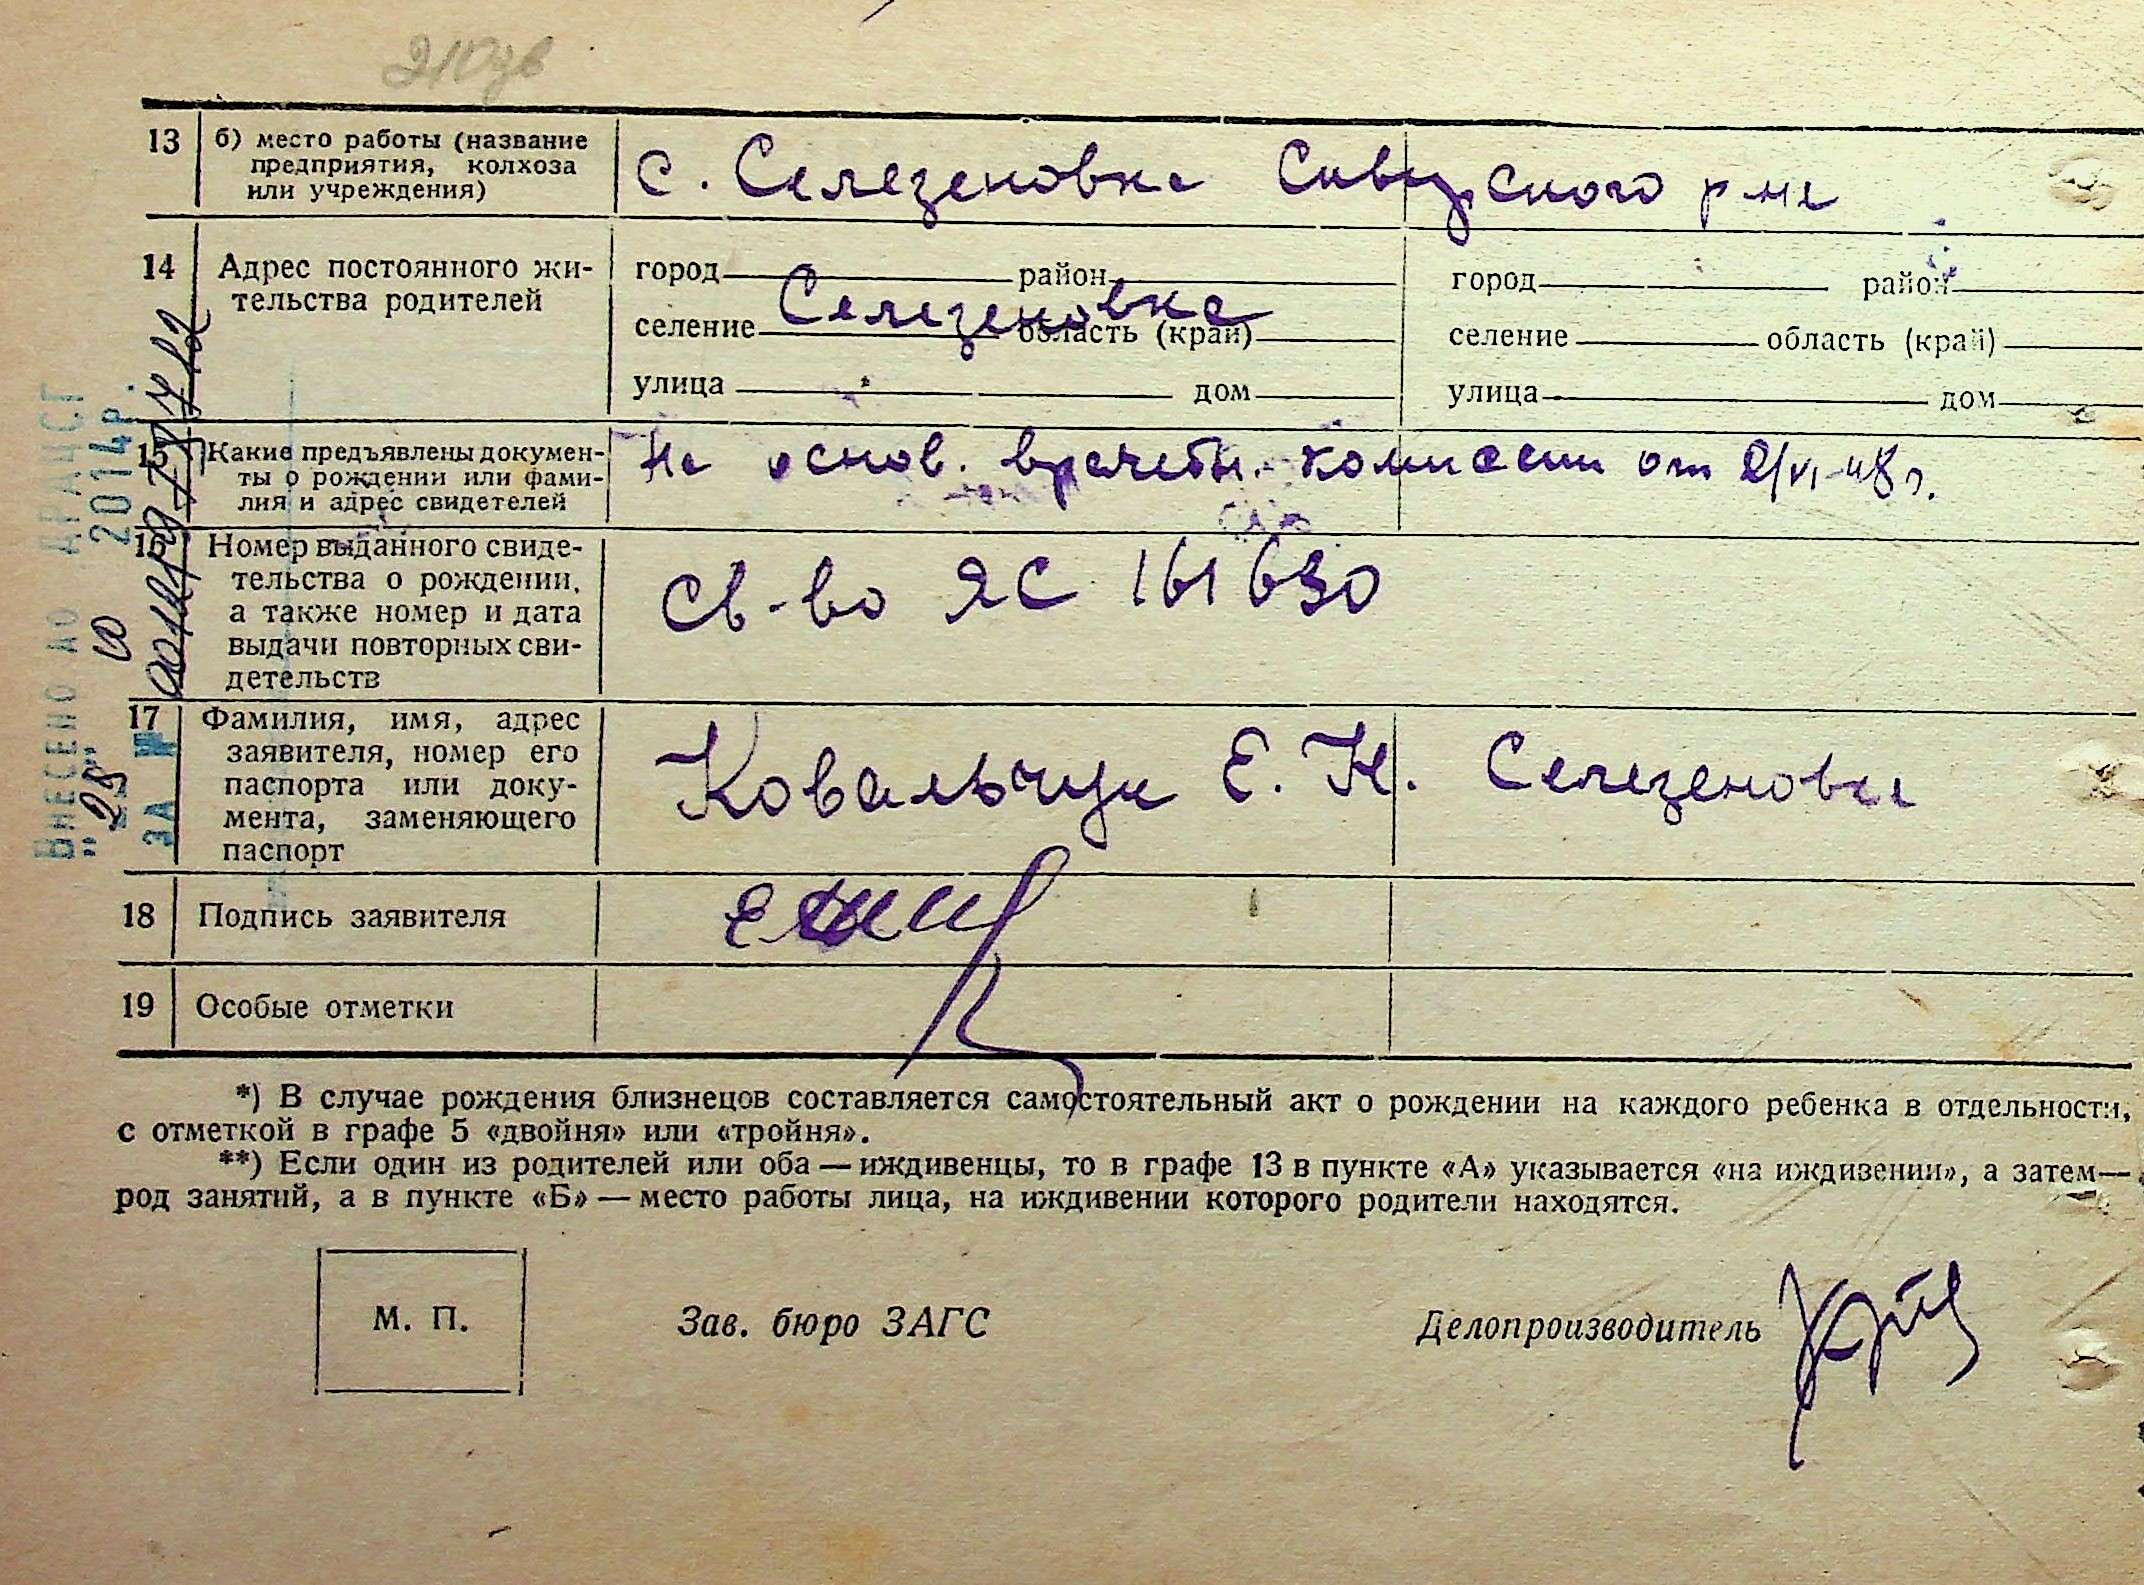 13 б) место работы (название
предприятия, колхоза
или учреждения)
с. Селезеновка Сквирского р-на
14 Адрес постоянного жи-
тельства родителей
город район город район
селение Селезеновка область (край) селение область (край)
улица дом улица дом
15 Какие предъявлены докумен-
ты о рождении или фами-
лия и адрес свидетелей
На основ. врачебн. комиссии от 2/VI-48 г.
16 Номер выданного свиде-
тельства о рождении,
а также номер и дата
выдачи повторных сви-
детельств
Св-во ЯС 161630
17 Фамилия, имя, адрес
заявителя, номер его
паспорта или доку-
мента, заменяющего
паспорт
Ковальчук Е. К. Селезеновка
18 Подпись заявителя
19 Особые отметки
*) В случае рождения близнецов составляется самостоятельный акт о рождении на каждого ребенка в отдельности,
с отметкой в графе 5 «двойня» или «тройня».
**) Если один из родителей или оба — иждивенцы, то в графе 13 в пункте «А» указывается «на иждивении», а затем—
род занятий, а в пункте «Б» — место работы лица, на иждивении которого родители находятся.
М. П.
Зав. бюро ЗАГС
Делопроизводитель
ВНЕСЕНО ДО ДРАЦСГ
"28" 10 2014р.
ЗА №